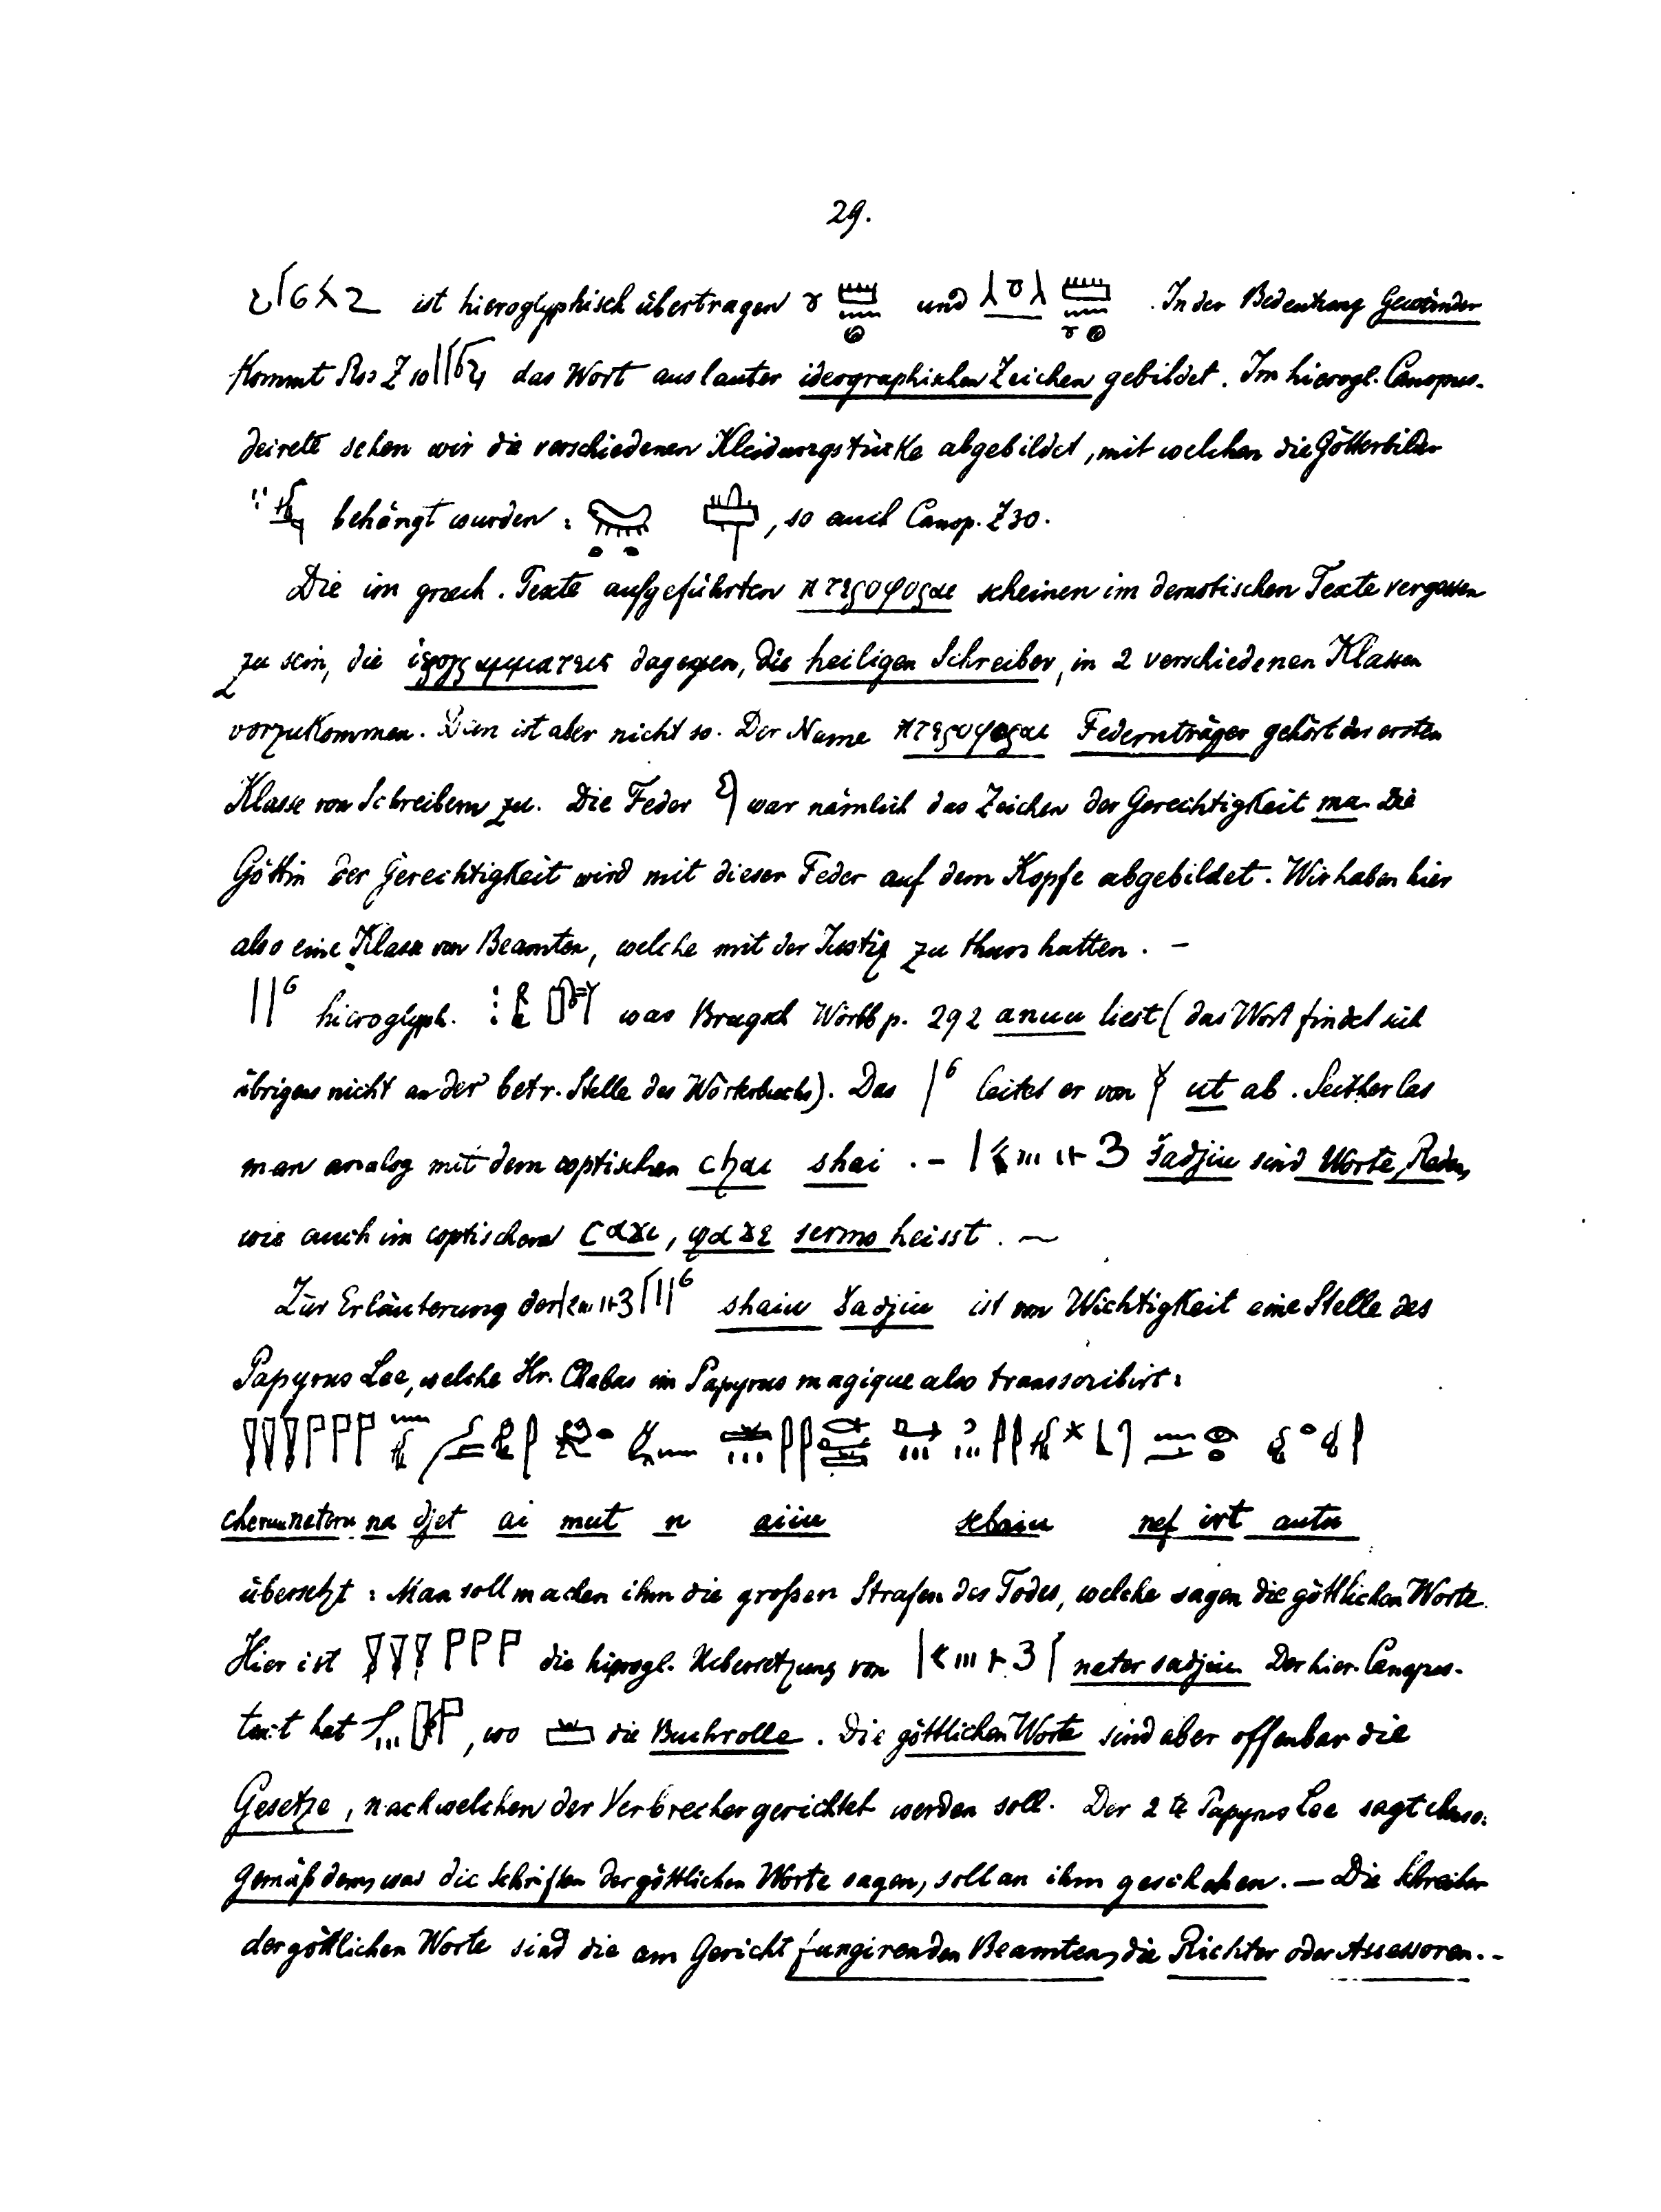 29.
ist hieroglyphisch übertragen und . In der Bedeutung Gewänder
kommt Ros Z 10 das Wort aus lauter ideographischen Zeichen gebildet. Im hierogl. Canopus-
decrete sehen wir die verschiedenen Kleidungstücke abgebildet, mit welchen die Götterbilder
behängt wurden: , so auch Canop. Z 30.
Die im griech. Texte aufgeführten πτεροφοραι scheinen im demotischen Texte vergessen
zu sein, die ἱερογραμματεις dagegen, die heiligen Schreiber, in 2 verschiedenen Klassen
vorzukommen. Dem ist aber nicht so. Der Name πτεροφοραι Federnträger gehört der ersten
Klasse von Schreibern zu. Die Feder war nämlich das Zeichen der Gerechtigkeit ma. Die
Göttin der Gerechtigkeit wird mit dieser Feder auf dem Kopfe abgebildet. Wir haben hier
also eine Klasse von Beamten, welche mit der Justiz zu thun hatten. –
hieroglyph. was Brugsch Wörtb p. 292 anuu liest (das Wort findet sich
übrigens nicht an der betr. Stelle des Wörterbuchs). Das leitet er von ut ab. Seither las
man analog mit dem coptischen cϧαι shai . – šadjiu sind Worte, Reden,
wie auch im coptischen cαϫι, ϣαϫε sermo heisst. –
Zur Erläuterung der shaiu šadjiu ist von Wichtigkeit eine Stelle des
Papyrus Lee, welche Hr. Chabas im Papyrus magique also transscribirt:
cheruuneteru na djet ai mut n aiiu sbaiu nef irt autu
übersetzt: Man soll machen ihm die großen Strafen des Todes, welche sagen die göttlichen Worte.
Hier ist die hierogl. Uebersetzung von neter sadjiu. Der hier. Canopus-
text hat , wo die Buchrolle. Die göttlichen Worte sind aber offenbar die
Gesetze, nach welchen der Verbrecher gerichtet werden soll. Der 2te Papyrus Lee sagt ebenso:
Gemäß dem, was die Schriften der göttlichen Worte sagen, soll an ihm geschehen. – Die Schreiber
der göttlichen Worte sind die am Gericht fungirenden Beamten, die Richter oder Assessoren. –